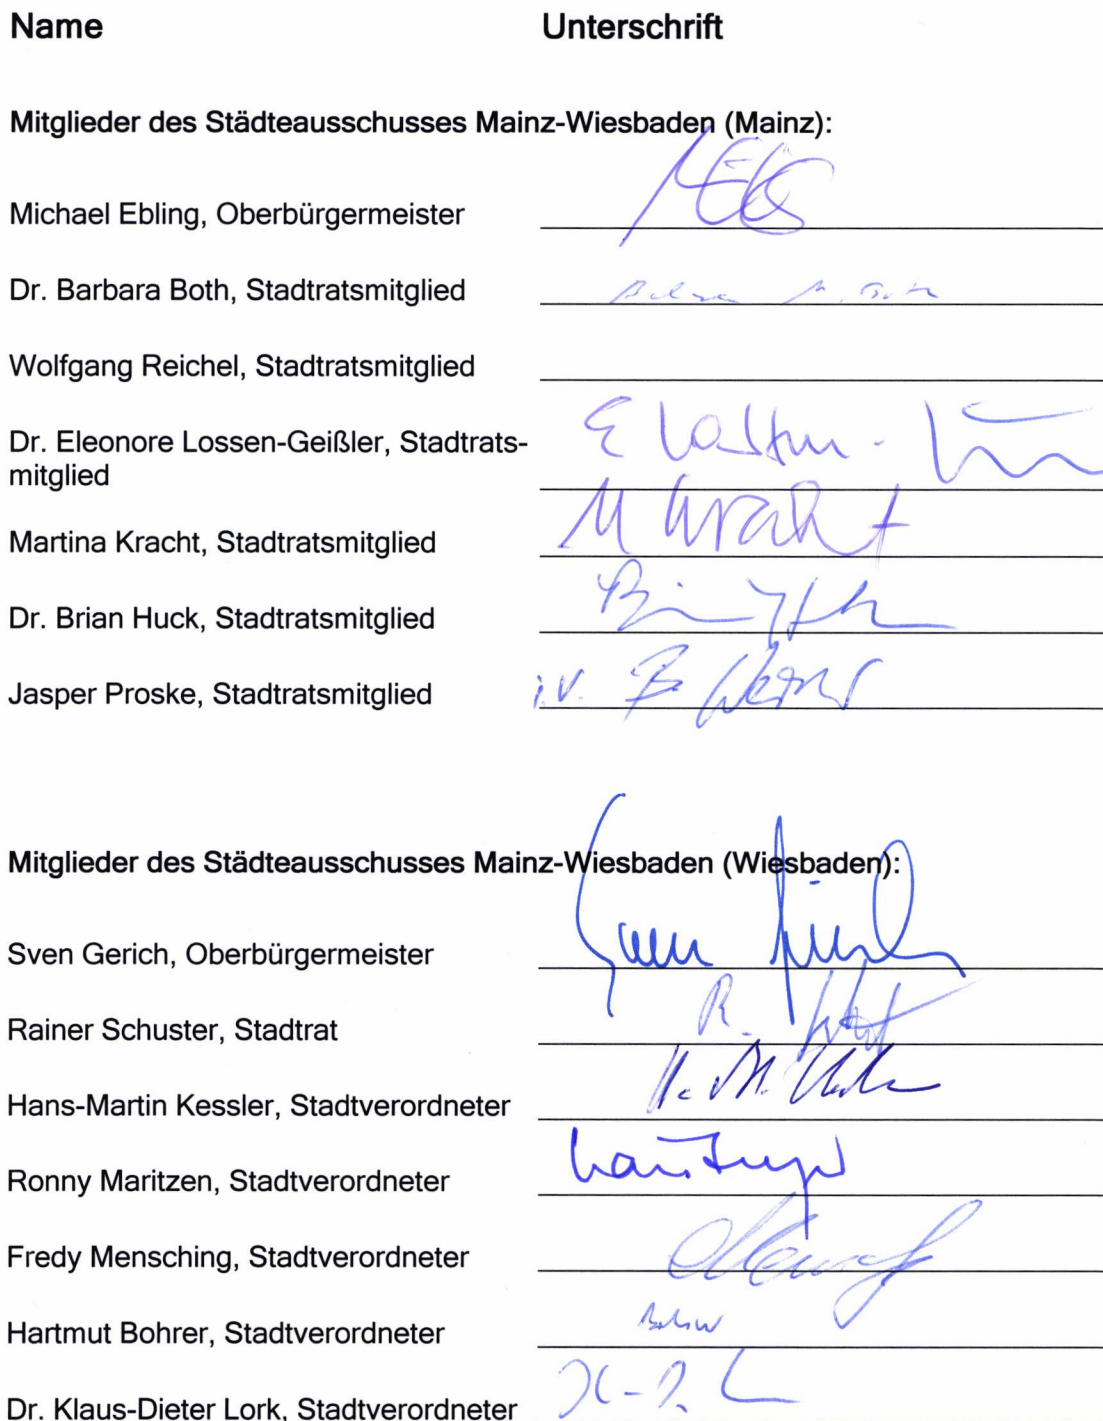 Name Unterschrift
Mitglieder des Städteausschusses Mainz-Wiesbaden (Mainz):
Michael Ebling, Oberbürgermeister
Dr. Barbara Both, Stadtratsmitglied
Wolfgang Reichel, Stadtratsmitglied
Dr. Eleonore Lossen-Geißler, Stadtrats-
mitglied
Martina Kracht, Stadtratsmitglied M Kracht
Dr. Brian Huck, Stadtratsmitglied
Jasper Proske, Stadtratsmitglied i.V. B.
Mitglieder des Städteausschusses Mainz-Wiesbaden (Wiesbaden):
Sven Gerich, Oberbürgermeister Sven
Rainer Schuster, Stadtrat R.
Hans-Martin Kessler, Stadtverordneter
Ronny Maritzen, Stadtverordneter
Fredy Mensching, Stadtverordneter
Hartmut Bohrer, Stadtverordneter
Dr. Klaus-Dieter Lork, Stadtverordneter